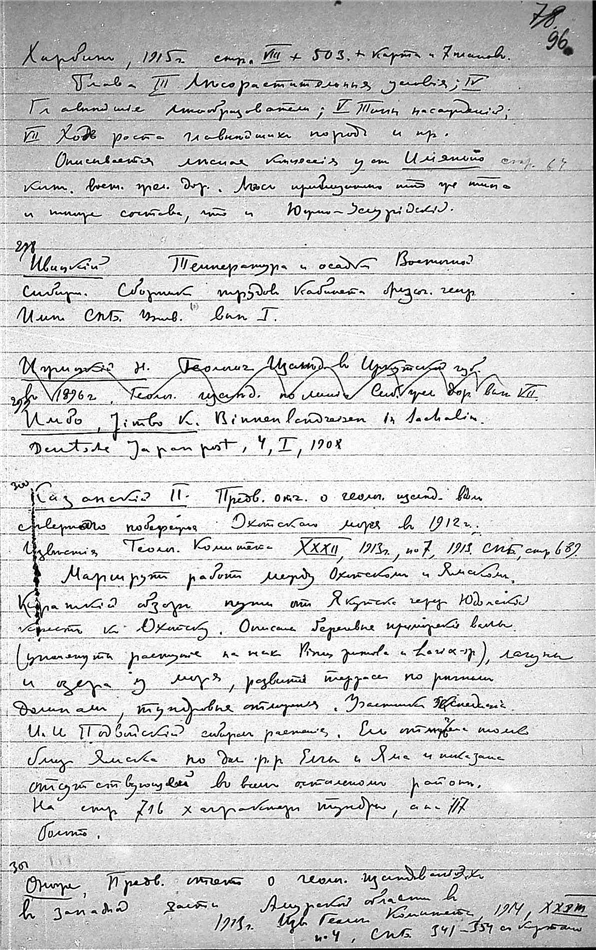 78.
96
Харбин, 1915г стр. VIII + 503. + карта и 7 планов.
Глава III Лесорастительныя условия; IV
Главнейшие лесообразователи; V Типы насаждений;
VII Ход роста главнейших пород и пр.
Описывается лесная концессия у ст Имяньпо стр. 64
кит. вост. жел. дор. Леса приблизительно того же типа
и состава, что и Южно-Уссурийский.
298
Ивицкий Температура и осадки Восточной
Сибири. Сборник трудов кабинета физич. геогр
Имп СПБ. Унив. вып I.
Ижицкий Н. Геологич Изслед. в Иркутской губ.
в 1896г. Геол. изслед. по линии Сиб жел дор. вып VII.
299
Имбо, Jimbo K. Binnenlandreisen in Sachalin.
Deutsche Japan post, 4, I, 1908
300
Казанский П. Предв. отч. о геолог. изслед. вдоль
северного побережья Охотского моря в 1912г.
Известия Геол. Комитета XXXII, 1913г., no 7, 1913, СПБ, стр 689.
Маршрут работ между Охотском и Ямском.
Краткий обзор пути от Якутска через Юдомский
крест к Охотску. Описаны береговые валы.
и озера у моря, развитие террас по речным
долинам, тундровые отложения. Участник экспедиции
И. И Подвитский собирал растения. Ель отмечена только
близ Ямска по дол. р.р Елы и Яма и показана
отсутствующей во всем остальном районе.
На стр 716 характер тундры, а на 717
болот.
301
Предв. отчет о геолог. изследованиях
в западной части Амурской области в
1913г. Изв Геол. Комитета, 1914, XXXIII
no 4, СПБ 341-354 с картою